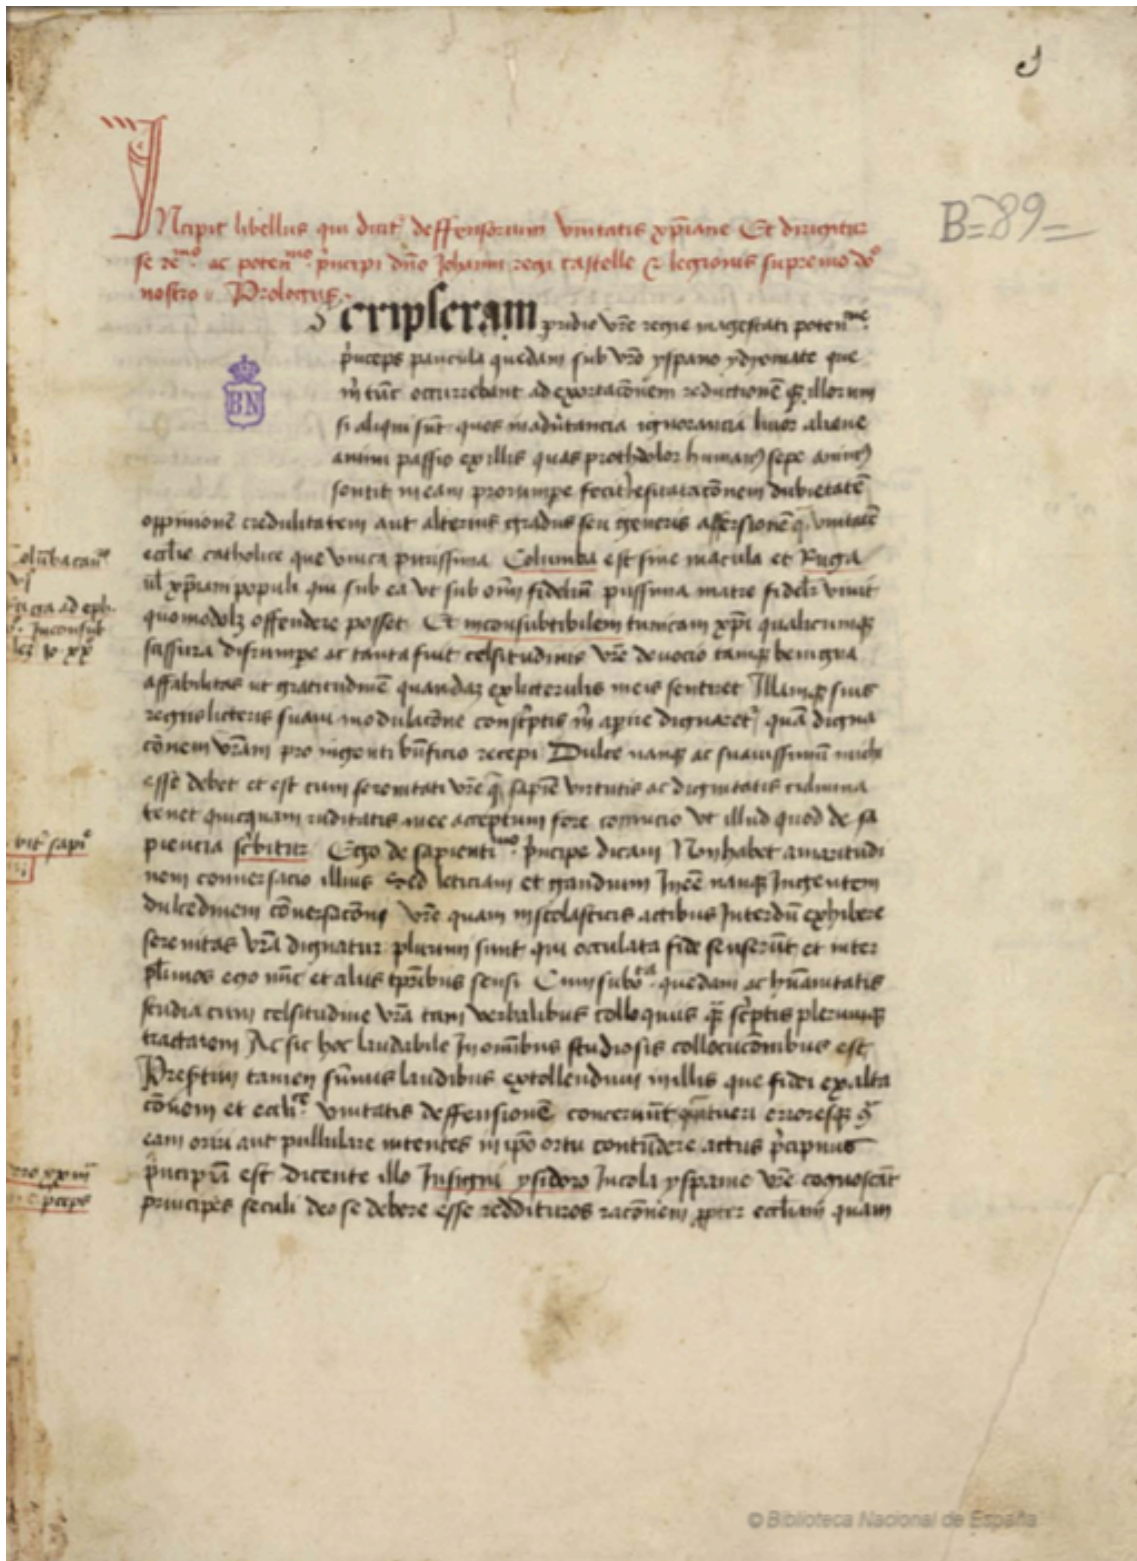 J
B=89=
INcipit libellus qui dicit᷒ deffensorium vnitatis xp̄iane Et dirigitur
se reᵐᵒ. ac potenᵐᵒ. p̍ncipi dn̄o Johanni regi castelle & legionis supremo dō
nostro Prologus
Scripseram pridie vr̄e regie magestati potenᵐᵉ.
p̍nceps paucula quedam sub vr̄o yspano ydyomate que
m̍ tūc occurrebant ad exortacōnem reductionē q̨ illorum
si aliqui sūt quos inadūtancia ignorancia liuor aliene
animi passio ex illis quas prothdolor humanꝰ sepe animꝰ
sentit in eam prorumpe fecit esitatacōnem dubietatē
oppinionē credulitatem aut alterius gradus seu generis assersionē q̨ vnitatē
eccl̄ie catholice que vnica purissima Columba est sine macula et Ruga
ul̄ xp̄iani populi qui sub ea vt sub om̄i fidelium piissima matre fidelr̄ viuit
quomodolꝫ offendere posset Et inconsubtibilem tunicam xp̄i qualicumqꝫ
scissura disrumpe ac tanta fuit celsitudinis vr̄e deuocio tamqꝫ benigna
affabilitas ut gratitudinē quandaꝫ ex licterulis meis sentiret Illamqꝫ suis
regiis licteris suaui modulacōne conscp̍tis m̍ apire dignaret᷒ quā digna
cōnem vr̄am pro ingenti bn̄ficio recepi Dulce nanqꝫ ac suauissimū michi
esse debet et est cum serenitati vr̄e q̄ sapīe virtutis ac dignitatis culmina
tenet quicquam ruditatis mee acceptum fore conuicio vt illud quod de sa
piencia sc̍bitur Ego de sapientiᵐᵒ. p̍ncipe dicam Non habet amaritudi
nem conuersacio illius Sed leticiam et gaudium Ineē nanqꝫ Ingentem
dulcedinem cōuersacōni vr̄e quam in scolasticis actibus Interdū exhibere
serenitas vr̄a dignatur plurimi sunt qui occulata fide senserūt et inter
pl̄imos ego nūc et aliis tp̄ribus sensi Cum quedam ac hūanitatis
studia cum celsitudine vr̄a tam verbalibus colloquiis q̄ scp̍tis plerumqꝫ
tractarem Ac sic hoc laudabile In om̄ibus studiosis collocucōnibus est
Presertim tamen sūmis laudibus extollendum in illis que fidei exalta
cōnem et eccliᵉ. vnitatis deffensionē concernūt intueri erroresqꝫ q̄
eam oriri aut pullulare intentes in ip̄o ortu contūdere actus p̍cipuus
p̍ncipū est dicente illo Insigni ysidoro Incola yspanie vr̄e cognoscāt
principes seculi deo se debere esse reddituros racōnem ꝓpter eccl̄iam quam
ruga ad eph.
Inconsub
© Biblioteca Nacional de España
BN